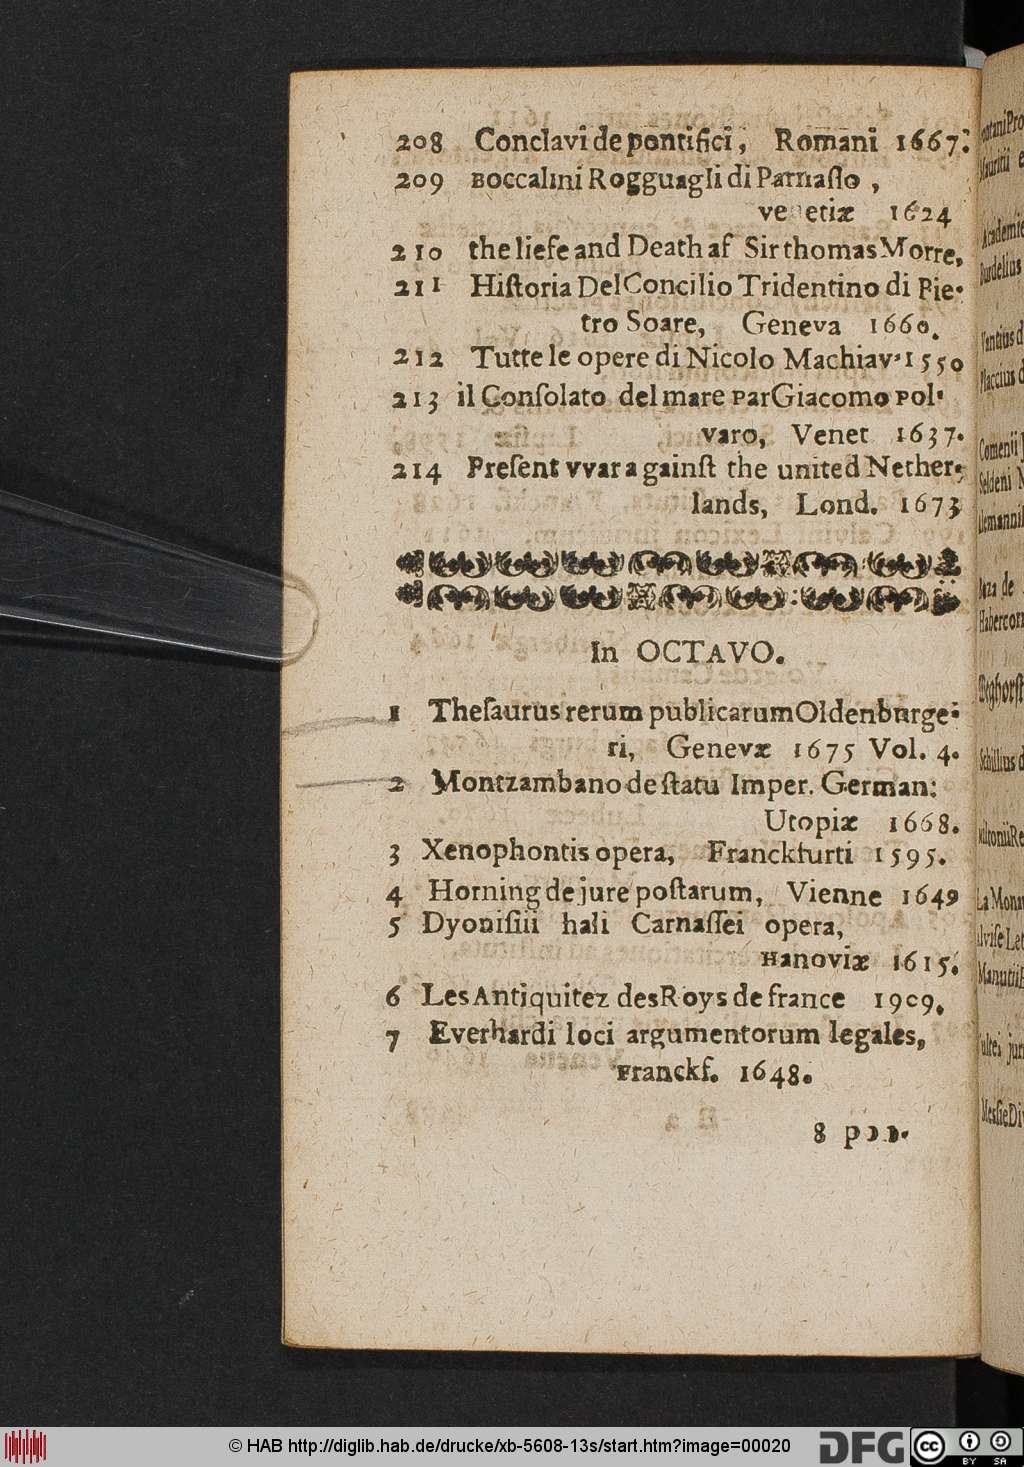 208 Conclavi de pontifici, Romani 1667.
209 Boccalini Rogguagli di Parnaſſo,
venetiæ 1624
210 the liefe and Death af Sir thomas Morre,
211 Hiſtoria Del Concilio Tridentino di Pie-
tro Soare, Geneva 1660.
212 Tutte le opere di Nicolo Machiav. 1550
213 il Conſolato del mare par Giacomo pol-
varo, Venet 1637.
214 Preſent vvar againſt the united Nether-
lands, Lond. 1673
In OCTAVO.
1 Theſaurus rerum publicarum Oldenburge-
ri, Genevæ 1675 Vol. 4.
2 Montzambano de ſtatu Imper. German:
Utopiæ 1668.
3 Xenophontis opera, Franckfurti 1595.
4 Horning de jure poſtarum, Vienne 1649
5 Dyoniſiii hali Carnaſſei opera,
Hanoviæ 1615.
6 Les Antiquitez des Roys de france 19c9.
7 Everhardi loci argumentorum legales,
Franckf. 1648.
8
pontani Pro
Mauritii
Academie
Burdelius
Vantius d
Placcius d
Comenii
Seldeni
de
Habercorn
Schillius d
La Mona
Let
Manutii
jur
Messie Di
© HAB http://diglib.hab.de/drucke/xb-5608-13s/start.htm?image=00020
DFG
cc
BY SA